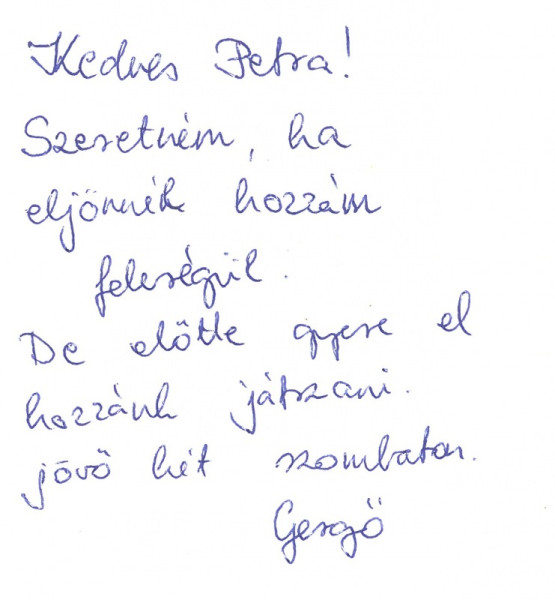 Kedves Petra!
Szeretném, ha
eljönnék hozzám
feleségül.
De előtte gyere el
hozzánk játszani.
jövő hét szombaton.
Gergő